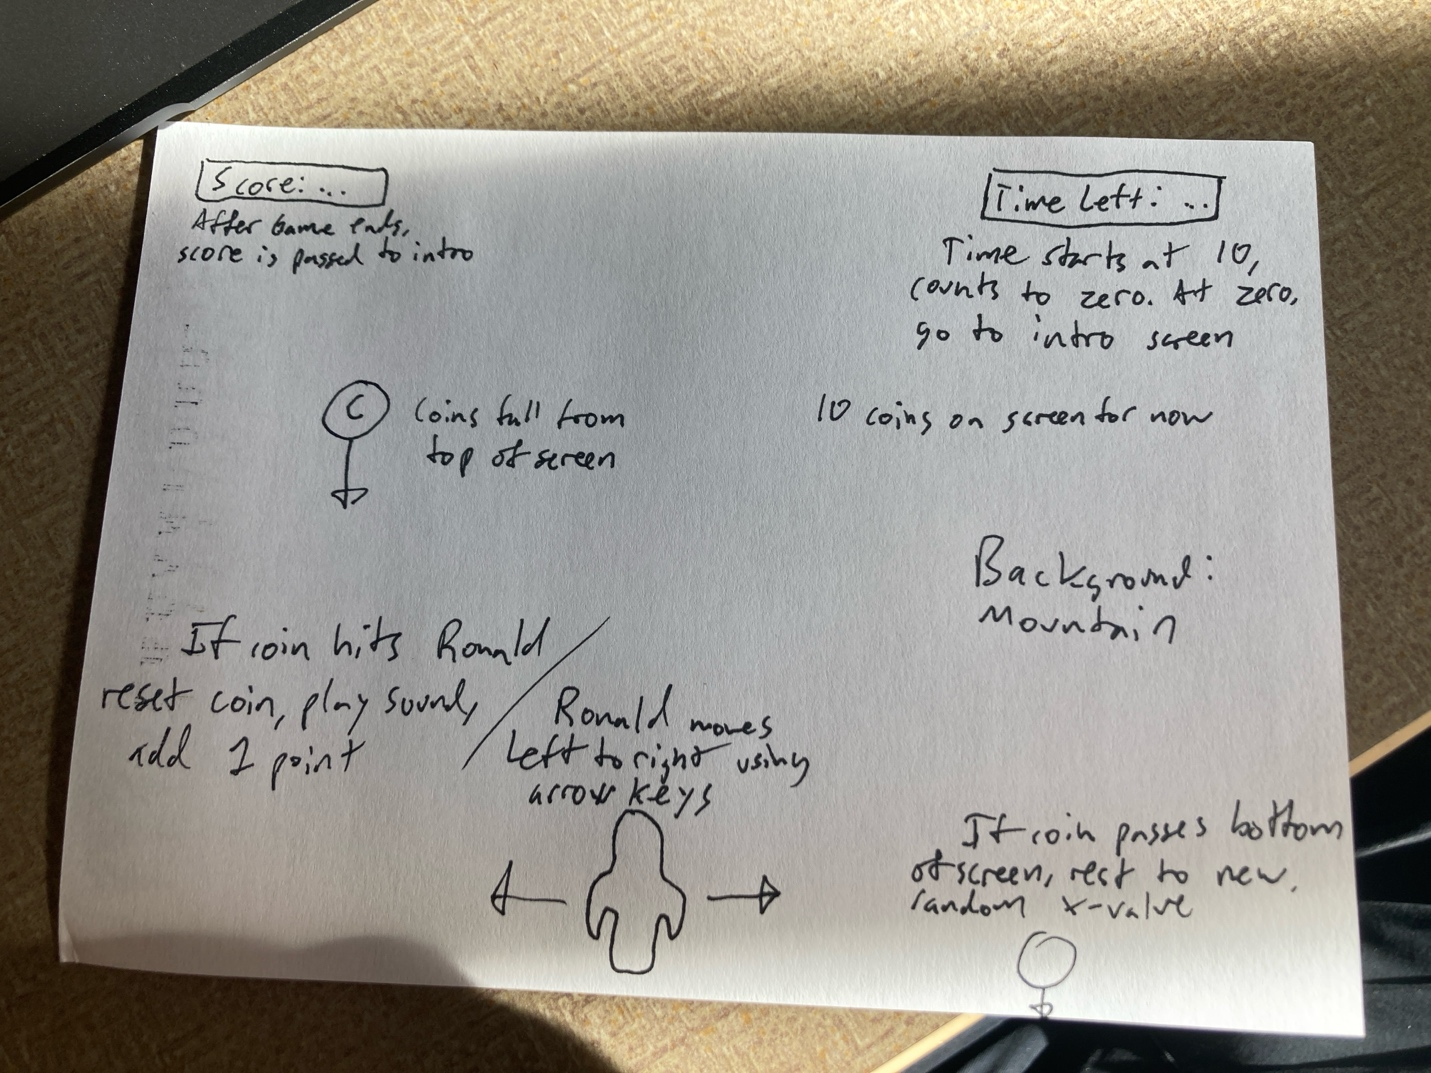 Score: ...
After Game ends,
score is passed to intro
Time Left: ...
Time starts at 10,
counts to zero. At zero,
go to intro screen
C
Coins fall from
top of screen
10 coins on screen for now
Background:
Mountain
If coin hits Ronald
reset coin, play sound,
add 1 point
Ronald moves
Left to right using
arrow keys
If coin passes bottom
of screen, rest to new,
random x-value